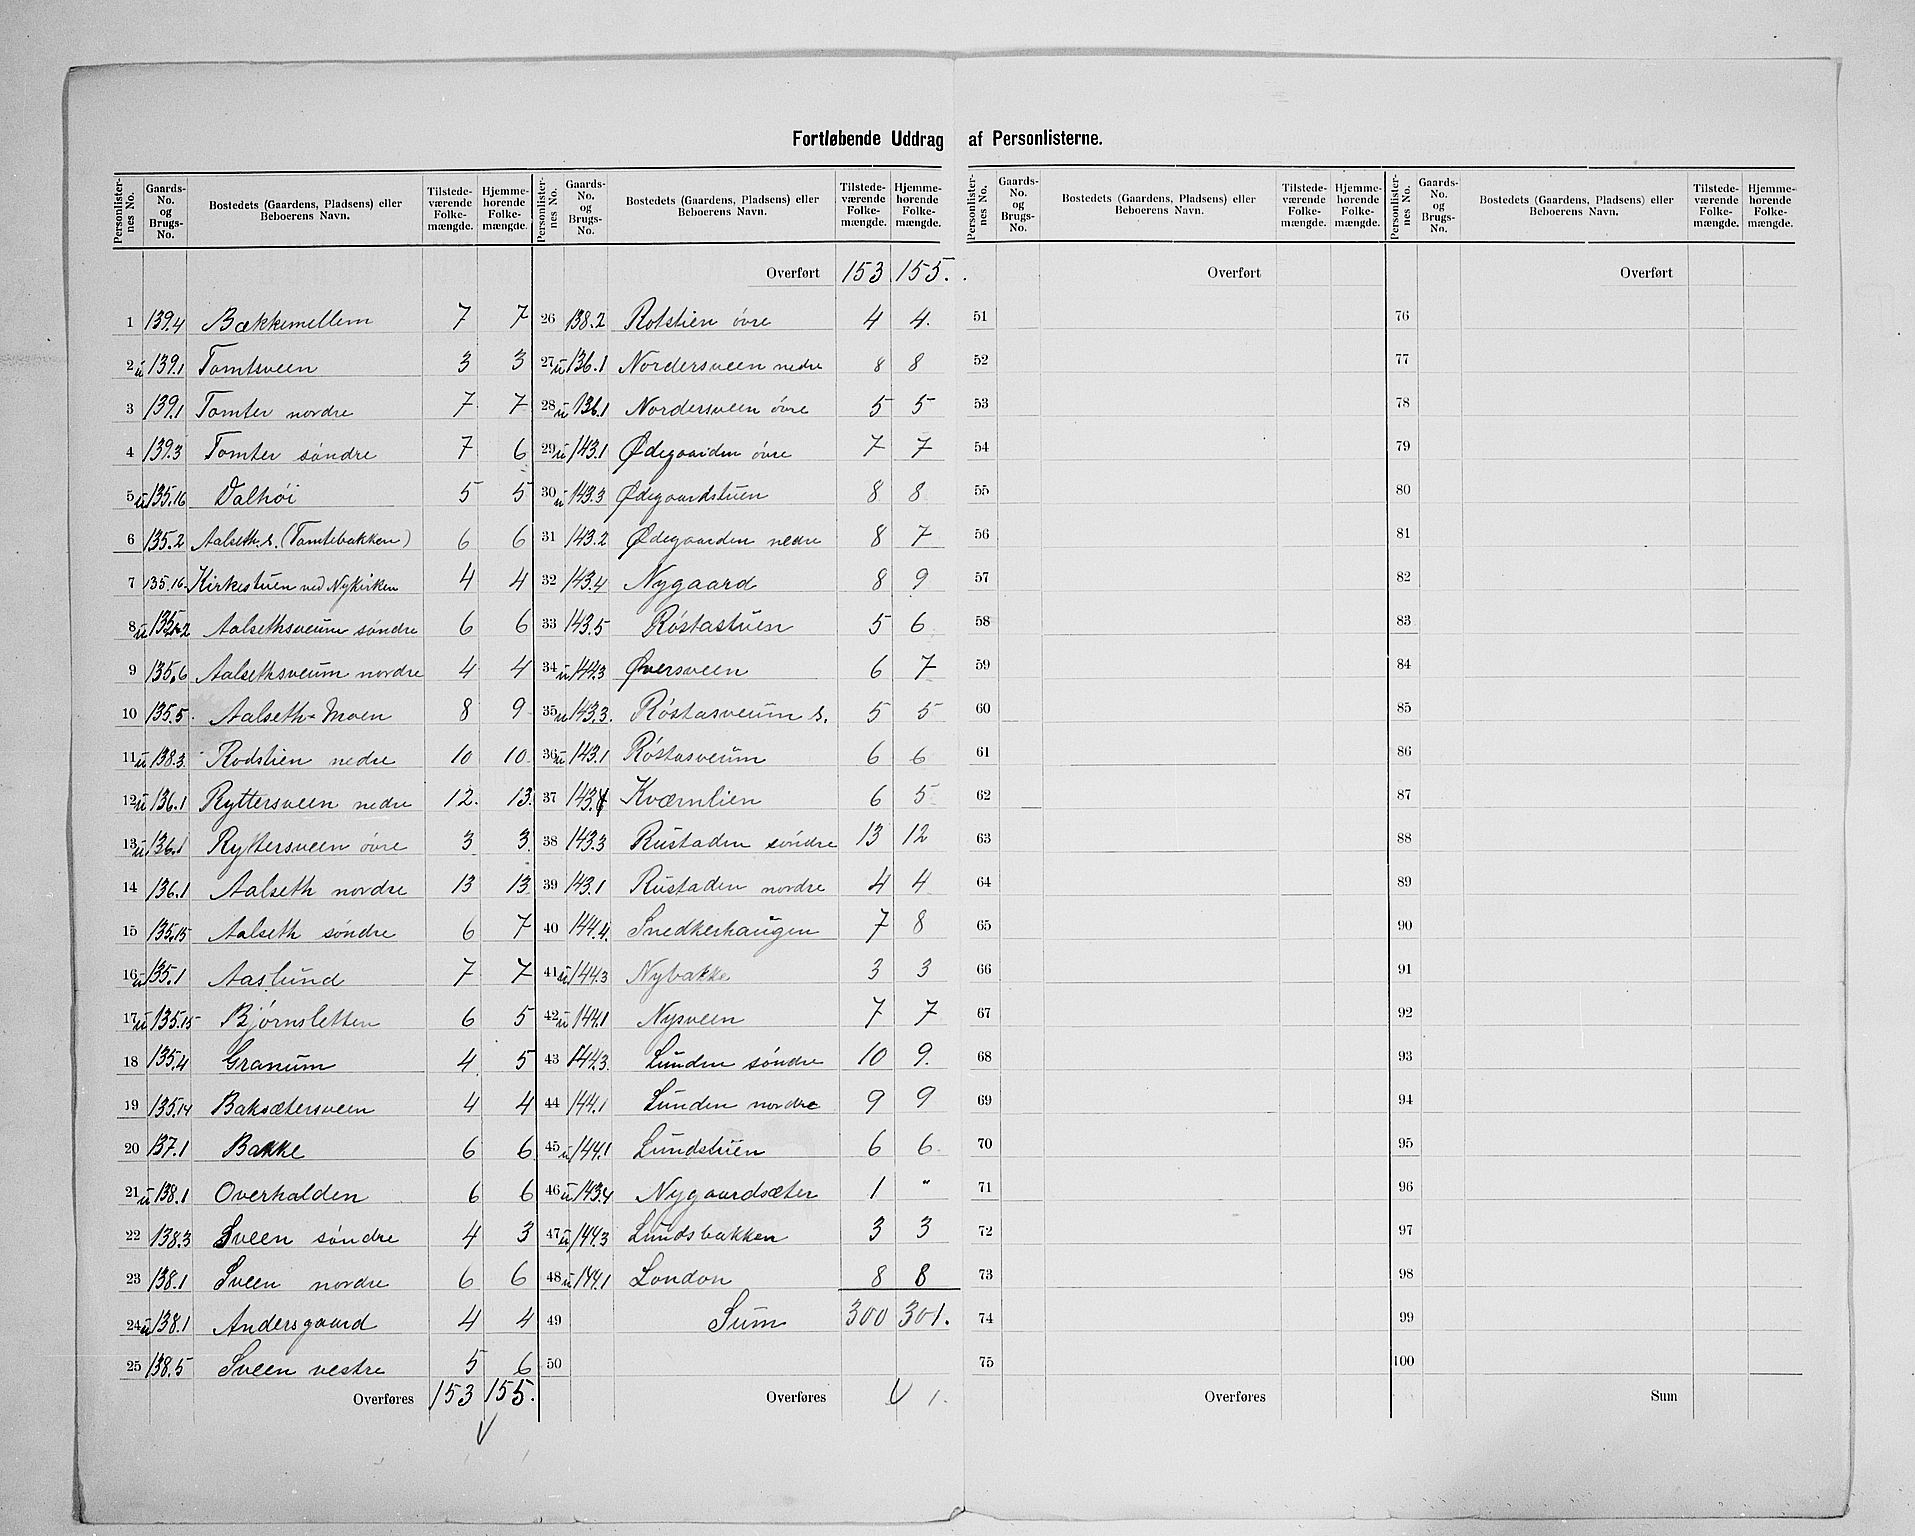 Fortløbende Uddrag af Personlisterne.
Personlister-nes No. | Gaards-No. og Brugs-No. | Bostedets (Gaardens, Pladsens) eller Beboerens Navn. | Tilstede-værende Folke-mængde. | Hjemme-hørende Folke-mængde. | Personlister-nes No. | Gaards-No. og Brugs-No. | Bostedets (Gaardens, Pladsens) eller Beboerens Navn. | Tilstede-værende Folke-mængde. | Hjemme-hørende Folke-mængde. | Personlister-nes No. | Gaards-No. og Brugs-No. | Bostedets (Gaardens, Pladsens) eller Beboerens Navn. | Tilstede-værende Folke-mængde. | Hjemme-hørende Folke-mængde. | Personlister-nes No. | Gaards-No. og Brugs-No. | Bostedets (Gaardens, Pladsens) eller Beboerens Navn. | Tilstede-værende Folke-mængde. | Hjemme-hørende Folke-mængde.
Overført 153 155. Overført Overført
1 139.4 Bækkemellem 7 7 26 138.2 Rotstien øvre 4 4. 51 76
2 u 139.1 Tomtsveen 3 3 27 u 136.1 Nordersveen nedre 8 8 52 77
3 139.1 Tomter nordre 7 7 28 u 136.1 Nordersveen øvre 5 5 53 78
4 139.3 Tomter søndre 7 6 29 u 143.1 Ødegaarden øvre 7 7 54 79
5 u 135.16 Dalhøi 5 5 30 u 143.3 Ødegaardstuen 8 8 55 80
6 135.2 Aalseth s. (Tomtebakken) 6 6 31 143.2 Ødegaarden nedre 8 7 56 81
7 135.16 Kirkestuen ved Nykirken 4 4 32 143.4 Nygaard 8 9 57 82
8 u Aalsethsveum søndre 6 6 33 143.5 Røstastuen 5 6 58 83
9 135.6 Aalsethsveum nordre 4 4 34 u 144.3 Øversveen 6 7 59 84
10 135.5. Aalseth-Moen 8 9 35 u 143.3. Røstasveum s. 5 5 60 85
11 u 138.3 Rodstien nedre 10 10 36 u 143.1 Røstasveum 6 6 61 86
12 u 136.1 Ryttersveen nedre 12. 13. 37 Kværnlien 6 5 62 87
13 u 136.1 Ryttersveen øvre 3 3 38 143.3 Rustaden søndre 13 12 63 88
14 136.1 Aalseth nordre 13 13 39 143.1 Rustaden nordre 4 4 64 89
15 135.15 Aalseth søndre 6 7 40 144.4. Snedkerhaugen 7 8 65 90
16 u 135.1 Aaslund 7 7 41 u 144.3 Nybakke 3 3 66 91
17 u 135.15 Bjørnsletten 6 5 42 u 144.1 Nysveen 7 7 67 92
18 135.4 Granum 4 5 43 144.3. Lunden søndre 10 9. 68 93
19 135.14 Baksætersveen 4 4 44 144.1 Lunden nordre 9 9 69 94
20 137.1 Bakke 6 6 45 u 144.1 Lundstuen 6 6. 70 95
21 u 138.1 Overhalden 6 6 46 u 143.4 Nygaardsæter 1 " 71 96
22 138.3 Sveen søndre 4 3 47 u 144.3 Lundsbakken 3 3 72 97
23 138.1 Sveen nordre 6 6 48 u 144.1 London 8 8 73 98
24 u 138.1 Andersgaard 4 4 49 Sum 300 301. 74 99
25 138.5 Sveen vestre 5 6 50 75 100
Overføres 153 155. Overføres 1. Overføres Sum